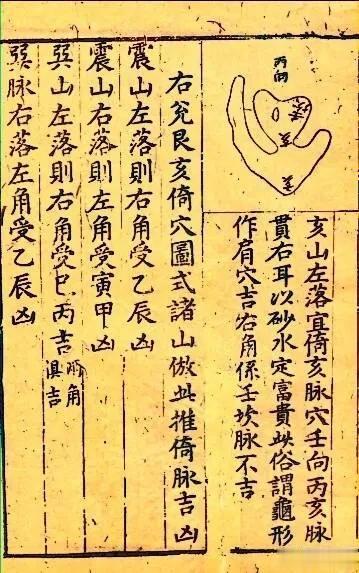 丙向
亥
亥山左落宜倚亥脉穴壬向丙亥脉
貫右耳以砂水定富貴此俗謂龜形
作肩穴吉右角係壬坎脉不吉
右兊艮亥倚穴圖式諸山倣此推倚脉吉凶
震山左落則右角受乙辰凶
震山右落則左角受寅甲凶
巽山左落則右角受巳丙吉兩角俱吉
巽脉右落左角受乙辰凶